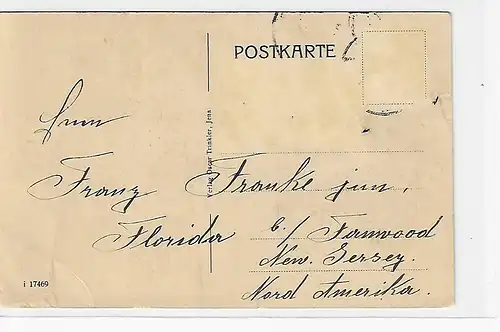 POSTKARTE
Herrn
Franz Franke jun,
Florida b./ Fanwood
New. Jersey.
Nord Amerika.
Verlag Oscar Trinkler, Jena
i 17469